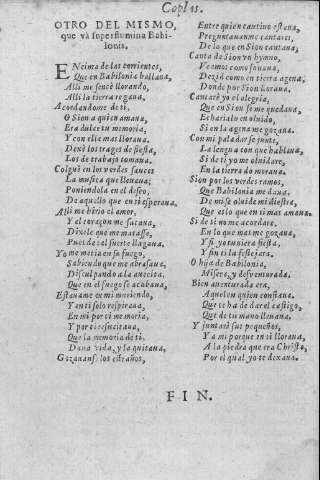 Copl 15.
OTRO DEL MISMO,
que va super flumina Babi-
lonis.
ENcima de las corrientes,
Que en Babilonia hallaua,
Alli me sentè llorando,
Alli la tierra regaua,
Acordandome de ti,
O Sion a quien amaua,
Era dulce tu memoria,
Y con ella mas lloraua,
Dexè los trages de fiesta,
Los de trabajo tomaua,
Colguè en los verdes sauces
La musica que lleuaua;
Poniendola en el deseo,
De aquello que en ti esperaua.
Alli me hirio el amor,
Y el coraçon me sacaua,
Dixele que me matasse,
Pues de tal suerte llagaua.
Yo me metia en su fuego,
Sabiendo que me abrasaua,
Disculpando a la auecica,
Que en el fuego se acabaua,
Estauame en mi muriendo,
Y en ti solo respiraua,
En mi por ti me moria,
Y por ti resucitaua,
Que la memoria de ti,
Daua vida, y la quitaua,
Gozauanse los estraños,
Entre quien cautiuo estaua,
Preguntauanme cantares,
De lo que en Sion cantaua,
Canta de Sion vn hymno,
Veamos como sonaua,
Dezid como en tierra agena,
Donde por Sion lloraua,
Cantarè yo el alegria,
Que en Sion se me quedaua,
Echarialo en oluido,
Si en la agena me gozaua.
Con mi paladar se junte,
La lengua con que hablaua,
Si de ti yo me oluidare,
En la tierra do moraua.
Sion por los verdes ramos,
Que Babilonia me daua,
De mi se oluide mi diestra,
Que es lo que en ti mas amaua.
Si de ti no me acordare,
En lo que mas me gozaua,
Y si yo tuuiera fiesta,
Y sin ti la festejara,
O hija de Babilonia,
Misera, y desventurada.
Bien auenturada era,
Aquel en quien confiaua,
Que te ha de dar el castigo,
Que de tu mano lleuaua,
Y juntarà sus pequeños,
Y a mi porque en ti lloraua,
A la piedra que era Christo,
Por el qual yo te dexaua.
FIN.